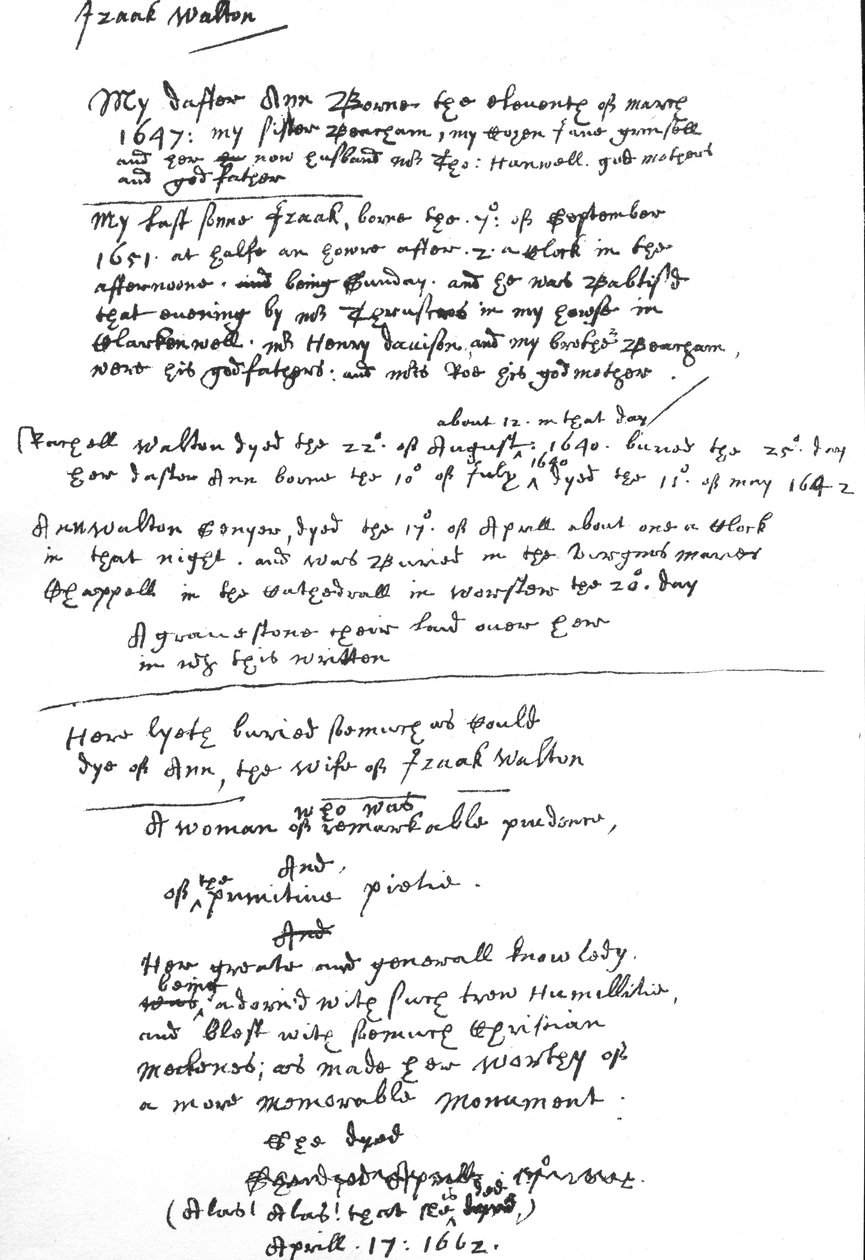 Izaak Walton
My dafter Ann Borne the eleventh of march
1647: my sister Beacham, my Cozen Jane grinsell
and her now husband mr Tho: Hanwell. god mothers
and god father
My last sonne Izaak, borne the .7o: of September
1651. at halfe an howre after .2. a Clock in the
afternoone. and being Sunday. and he was Baptis'd
that evening by mr Thruscros in my howse in
Clarkenwell. mr Henry davison and my brother Beacham,
were his godfathers: and mrs Roe his godmother.
about 12. in that day
Rachell Walton dyed the 22o. of August: 1640. buried the 25o. day
1640
her dafter Ann borne the 10o of July dyed the 11o. of may 1642
Ann Walton Senyer, dyed the 17o. of Aprill about one a Clock
in that night. and was Buried in the virgins maries
Chappell in the Cathedrall in Worster the 20o. day
A grave stone their laid over her
in wh this written
Here lyeth buried soemuch as Could
dye of Ann, the Wife of Izaak Walton
who was
A woman of remarkable prudence,
And,
of the primitive pietie.
And
Her greate and generall knowledg.
being
was adorn'd with such trew Humillitie,
and blest with soemuch Christian
meekenes; as made her worthy of
a more memorable Monument.
She dyed
(Alas! Alas! that she is ded)
Aprill .17: 1662.